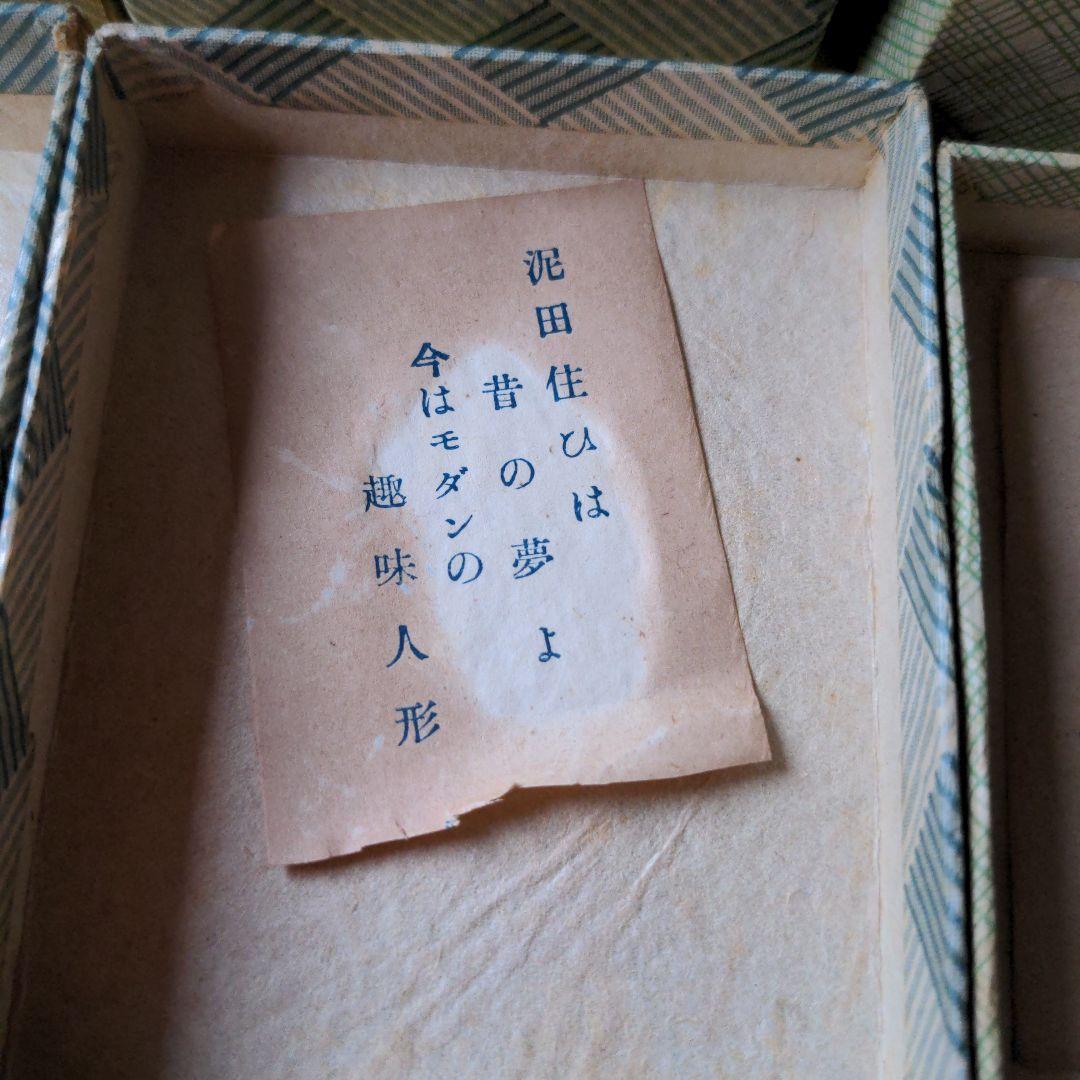 泥田住ひは
昔の夢よ
今はモダンの
趣味人形